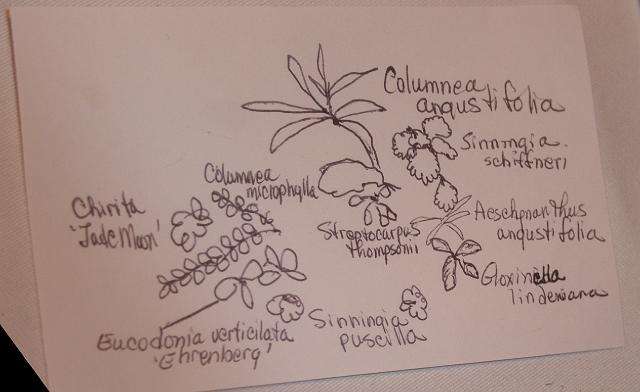 Columnea
angustifolia
Sinningia
schiffneri
Columnea
microphylla
Chirita
'Jade Moon'
Streptocarpus
thompsonii
Aeschynanthus
angustifolia
Gloxinella
lindeniana
Eucodonia verticilata
'Ehrenberg'
Sinningia
puscilla